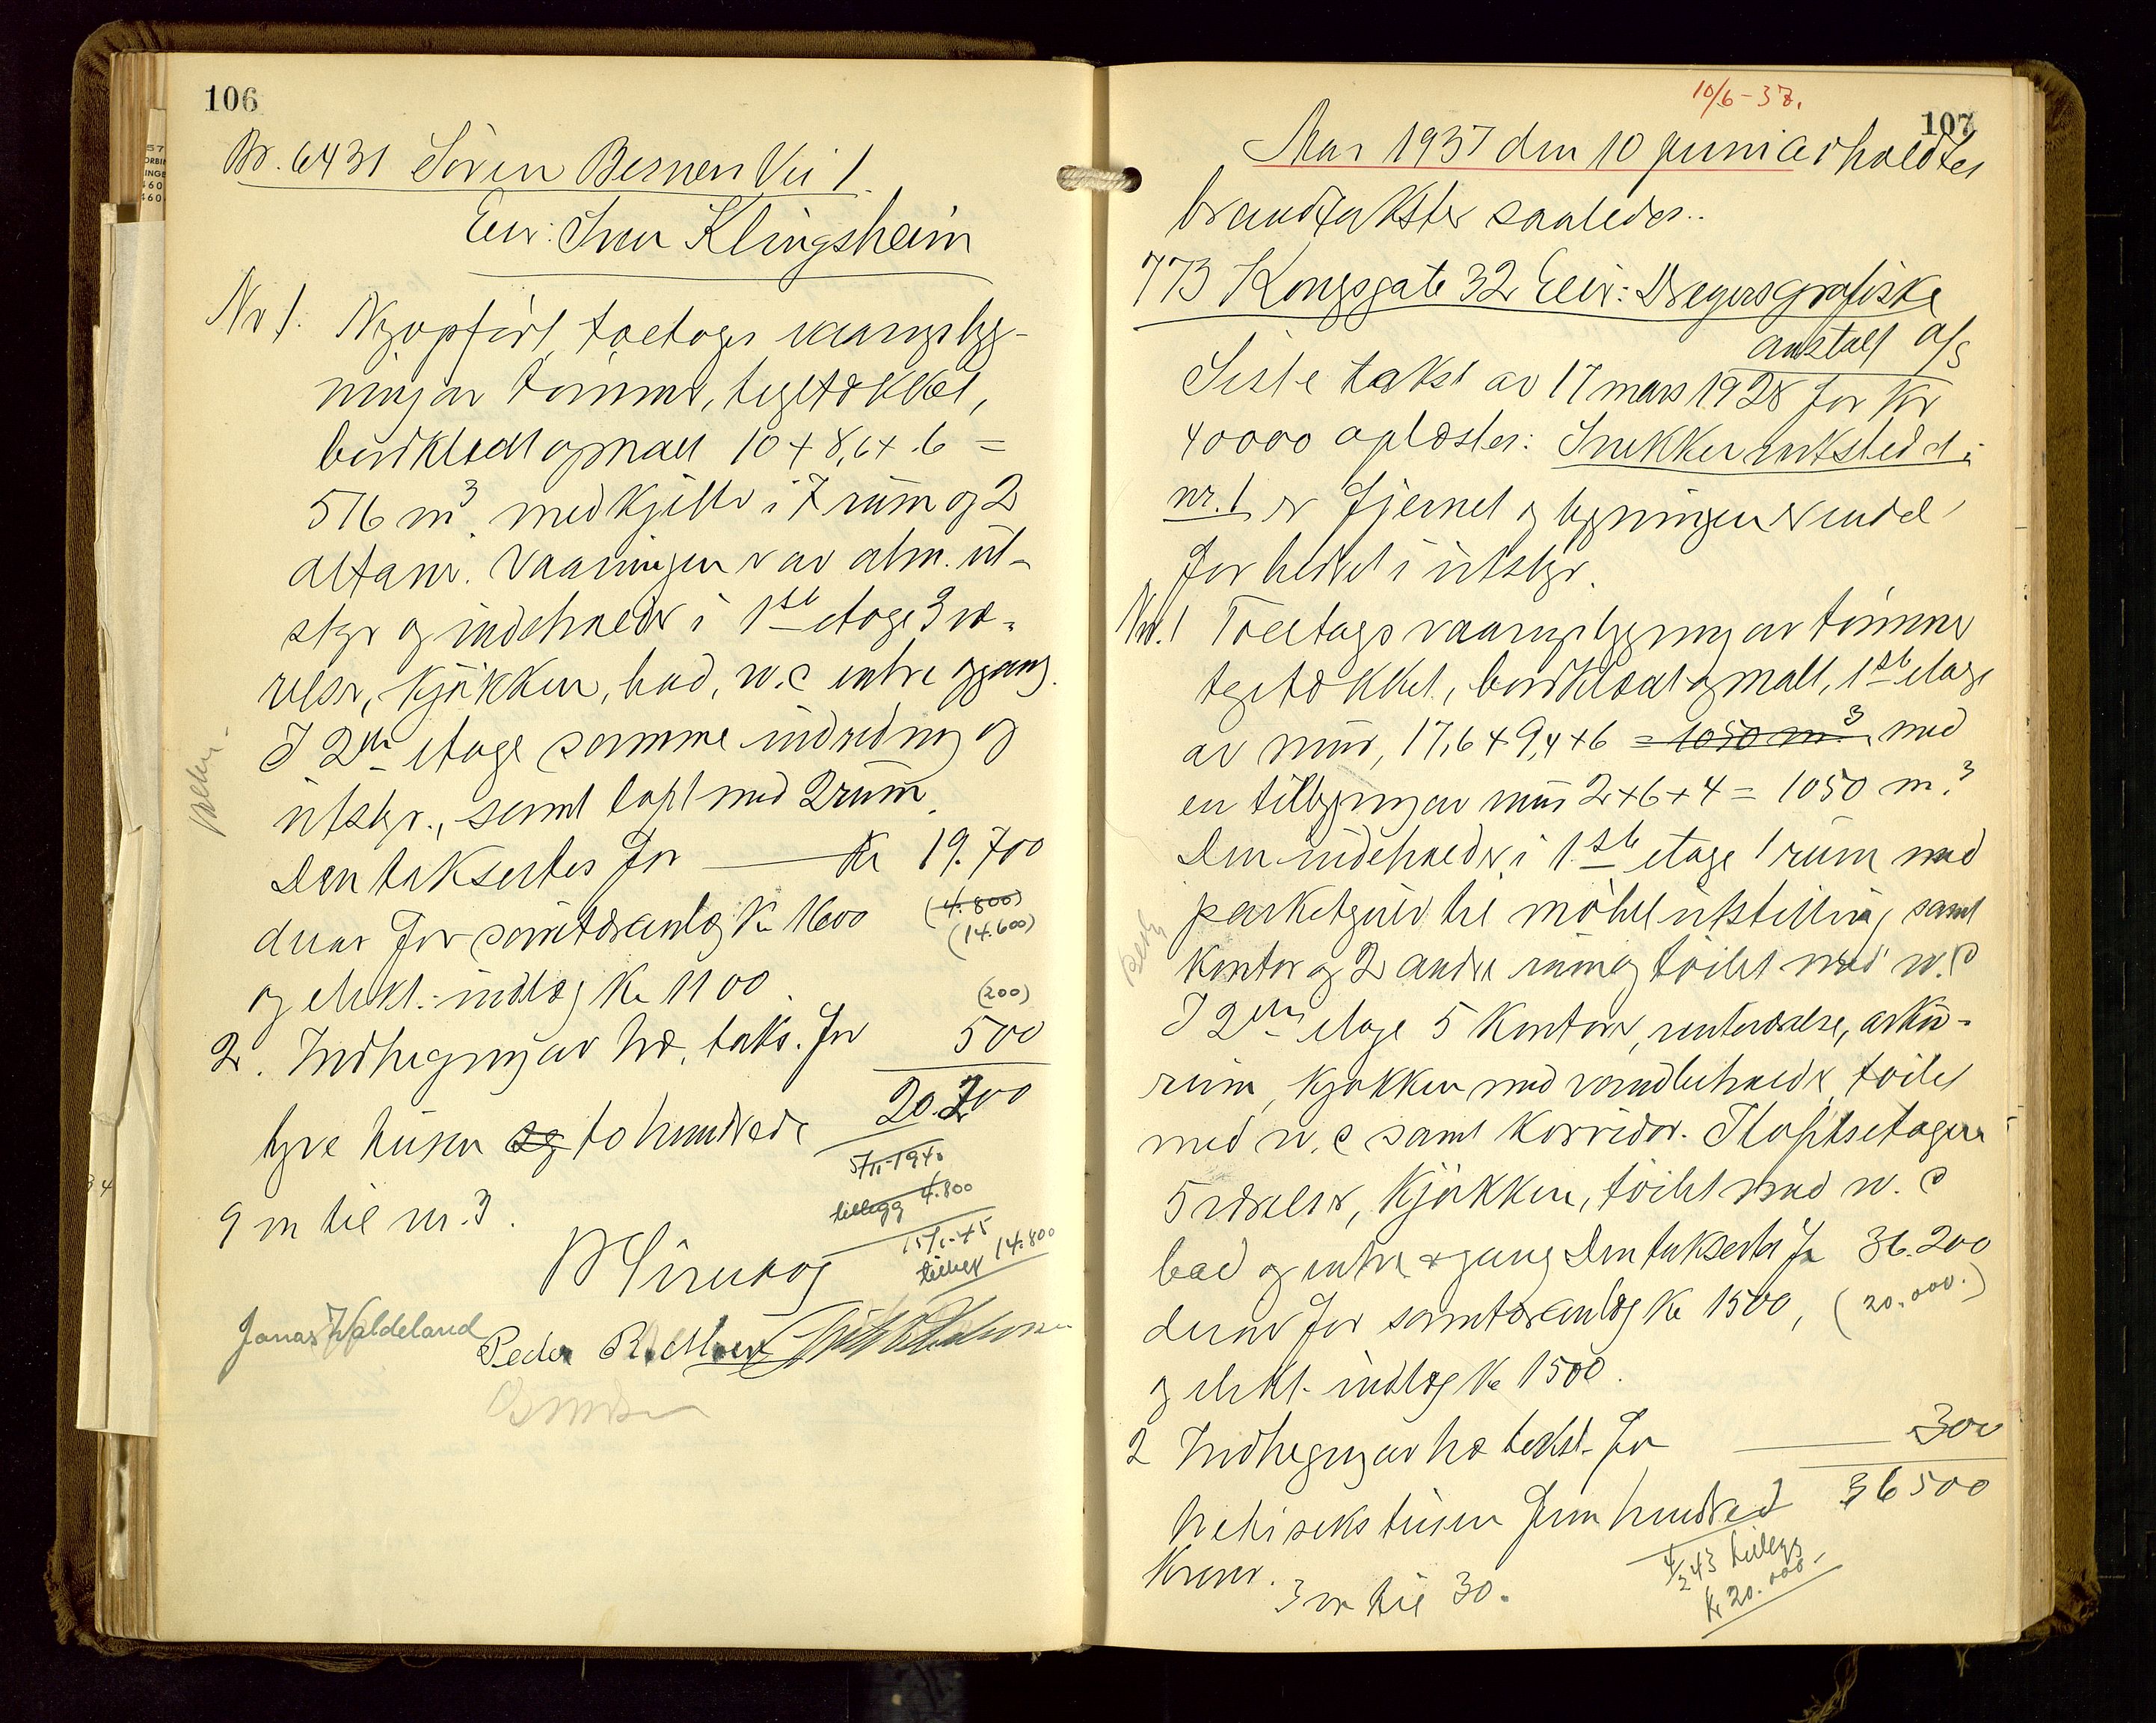 106
Br. 6431 Sören Berners Vei 1.
Eier: Iver Klingsheim
Nr 1. Nyopfört toetages vaaningsbyg-
ning av tömmer, teglt­ækket,
bordklædt og malt 10 + 8,6 + 6 =
516 m³. med kjeller i 7 rum og 2
altaner. Vaaningen er av alm. ut-
styr og indeholder i 1ste etage 3 væ-
relser, kjökken, bad, w.c entre og gang.
I 2den etage samme indredning og
utstyr, samt loft med 2 rum.
Den taksertes for Kr 19.700
derav for sanitæranlæg Kr 1600 (4.800)
(14.600)
og elekt. indlæg Kr 1100.
(200)
2. Indhegning av træ, taks. for 500
20.200
tyve tusen og to hundrede
5/11-1940
tillegg 4.800
9 m til nr. 3.
15/1-45
tillegg 14.800
Jonas Waldeland Peder R.
107
10/6-37.
Aar 1937 den 10 juni avholdtes
brandtakster saaledes..
773 Kongsgate 32 Eier: Dreyers grafiske
anstalt a/s
Siste takst av 17 mars 1928 for Kr
40000 oplæstes: Snekkerverkstedet i
nr. 1 er fjernet og bygningen er endel
forbedret i utstyr.
Nr. 1 Toetages vaaningsbygning av tömmer
teglt­ækket, bordklædt og malt, 1ste etage
av mur, 17,6 + 9,4 + 6 = 1050 m³ med
en tilbygning av mur 2 + 6 + 4 = 1050 m³
Den indeholder i 1ste etage 1 rum med
parketgulv til möbelutstilling, samt
kontor og 2 andre rum og toilet med w.c
I 2den etage 5 kontorer, venteværelse, arkiv-
rum, kjøkken med vandbeholder, toilet
med w.c samt korridor. I loftsetagen
5 værelser, kjökken, toilet med w.c
bad og entre & gang Den taksertes for 36.200
derav for sanitæranlæg Kr 1500, (20.000.)
og elekt. indlæg Kr 1500.
2 Indhegning av træ takst. for 300
36500
tretti seks tusen fem hundred
Kroner.
4/2 43 tillegg
kr 20.000.-
3 m til 30.